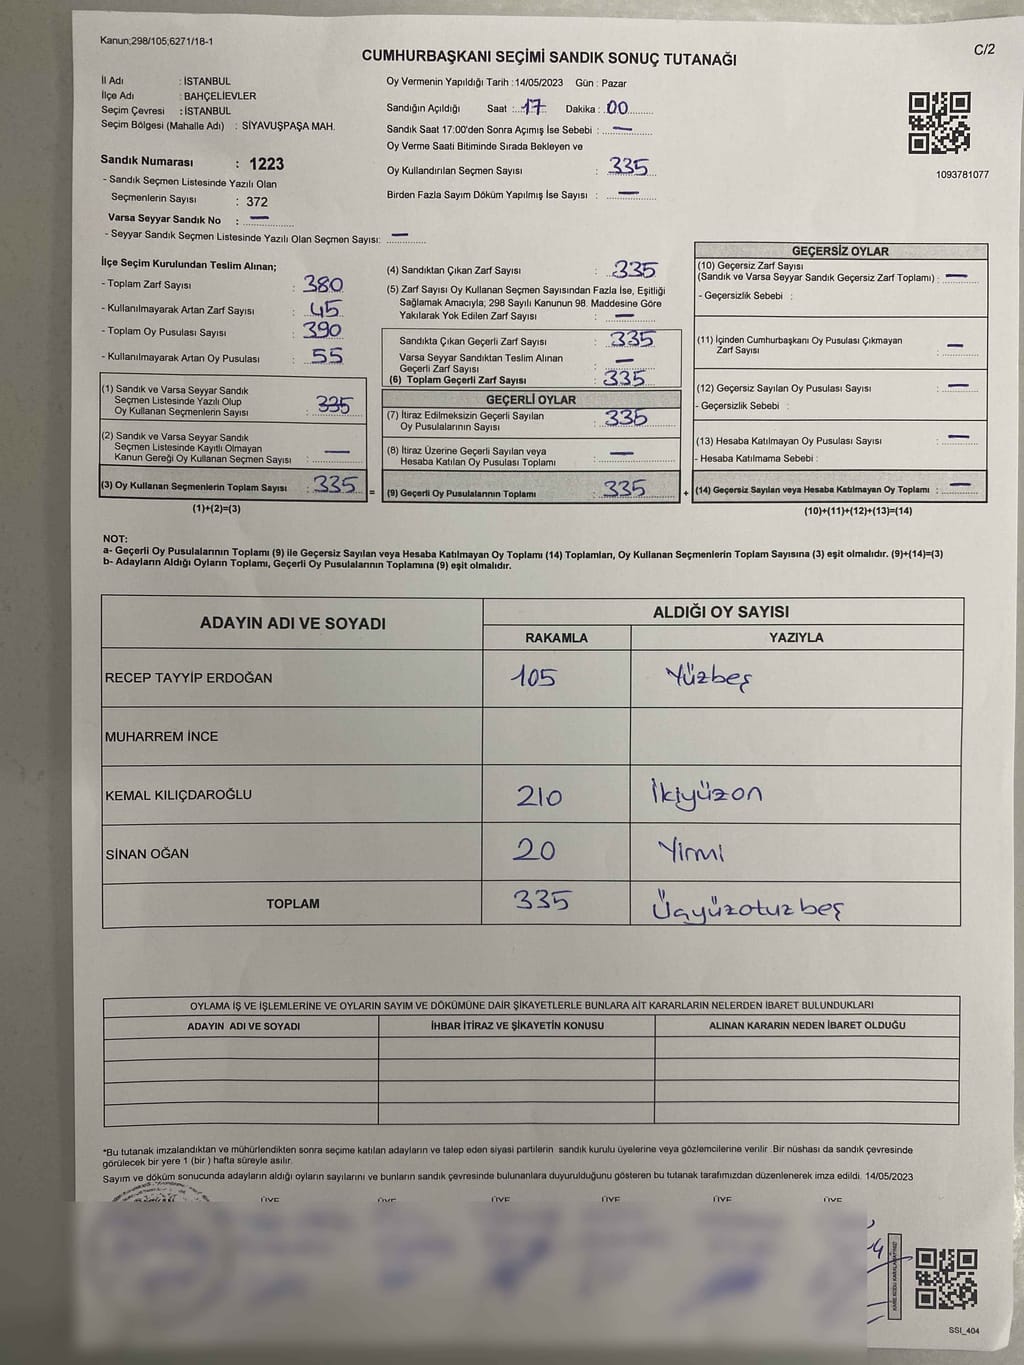 Kanun;298/105;6271/18-1
C/2
CUMHURBAŞKANI SEÇİMİ SANDIK SONUÇ TUTANAĞI
İl Adı : İSTANBUL
İlçe Adı : BAHÇELİEVLER
Seçim Çevresi : İSTANBUL
Seçim Bölgesi (Mahalle Adı) : SİYAVUŞPAŞA MAH.
Sandık Numarası : 1223
- Sandık Seçmen Listesinde Yazılı Olan
Seçmenlerin Sayısı : 372
Varsa Seyyar Sandık No : —
- Seyyar Sandık Seçmen Listesinde Yazılı Olan Seçmen Sayısı: —
Oy Vermenin Yapıldığı Tarih : 14/05/2023 Gün : Pazar
Sandığın Açıldığı Saat : 17 Dakika : 00
Sandık Saat 17.00'den Sonra Açımış İse Sebebi : —
Oy Verme Saati Bitiminde Sırada Bekleyen ve
Oy Kullandırılan Seçmen Sayısı : 335
Birden Fazla Sayım Döküm Yapılmış İse Sayısı : —
1093781077
İlçe Seçim Kurulundan Teslim Alınan;
- Toplam Zarf Sayısı : 380
- Kullanılmayarak Artan Zarf Sayısı : 45
- Toplam Oy Pusulası Sayısı : 390
- Kullanılmayarak Artan Oy Pusulası : 55
(1) Sandık ve Varsa Seyyar Sandık
Seçmen Listesinde Yazılı Olup
Oy Kullanan Seçmenlerin Sayısı : 335
(2) Sandık ve Varsa Seyyar Sandık
Seçmen Listesinde Kayıtlı Olmayan
Kanun Gereği Oy Kullanan Seçmen Sayısı : —
(3) Oy Kullanan Seçmenlerin Toplam Sayısı : 335 =
(1)+(2)=(3)
(4) Sandıktan Çıkan Zarf Sayısı : 335
(5) Zarf Sayısı Oy Kullanan Seçmen Sayısından Fazla İse, Eşitliği
Sağlamak Amacıyla; 298 Sayılı Kanunun 98. Maddesine Göre
Yakılarak Yok Edilen Zarf Sayısı : —
Sandıkta Çıkan Geçerli Zarf Sayısı : 335
Varsa Seyyar Sandıktan Teslim Alınan
Geçerli Zarf Sayısı : —
(6) Toplam Geçerli Zarf Sayısı : 335
GEÇERLİ OYLAR
(7) İtiraz Edilmeksizin Geçerli Sayılan
Oy Pusulalarının Sayısı : 335
(8) İtiraz Üzerine Geçerli Sayılan veya
Hesaba Katılan Oy Pusulası Toplamı : —
(9) Geçerli Oy Pusulalarının Toplamı : 335 +
GEÇERSİZ OYLAR
(10) Geçersiz Zarf Sayısı
(Sandık ve Varsa Seyyar Sandık Geçersiz Zarf Toplamı) : —
- Geçersizlik Sebebi :
(11) İçinden Cumhurbaşkanı Oy Pusulası Çıkmayan
Zarf Sayısı : —
(12) Geçersiz Sayılan Oy Pusulası Sayısı : —
- Geçersizlik Sebebi :
(13) Hesaba Katılmayan Oy Pusulası Sayısı : —
- Hesaba Katılmama Sebebi :
(14) Geçersiz Sayılan veya Hesaba Katılmayan Oy Toplamı : —
(10)+(11)+(12)+(13)=(14)
NOT:
a- Geçerli Oy Pusulalarının Toplamı (9) ile Geçersiz Sayılan veya Hesaba Katılmayan Oy Toplamı (14) Toplamları, Oy Kullanan Seçmenlerin Toplam Sayısına (3) eşit olmalıdır. (9)+(14)=(3)
b- Adayların Aldığı Oyların Toplamı, Geçerli Oy Pusulalarının Toplamına (9) eşit olmalıdır.
ADAYIN ADI VE SOYADI ALDIĞI OY SAYISI
RAKAMLA YAZIYLA
RECEP TAYYİP ERDOĞAN 105 Yüzbeş
MUHARREM İNCE
KEMAL KILIÇDAROĞLU 210 İkiyüzon
SİNAN OĞAN 20 Yirmi
TOPLAM 335 Üçyüzotuzbeş
OYLAMA İŞ VE İŞLEMLERİNE VE OYLARIN SAYIM VE DÖKÜMÜNE DAİR ŞİKAYETLERLE BUNLARA AİT KARARLARIN NELERDEN İBARET BULUNDUKLARI
ADAYIN ADI VE SOYADI İHBAR İTİRAZ VE ŞİKAYETİN KONUSU ALINAN KARARIN NEDEN İBARET OLDUĞU
*Bu tutanak imzalandıktan ve mühürlendikten sonra seçime katılan adayların ve talep eden siyasi partilerin sandık kurulu üyelerine veya gözlemcilerine verilir. Bir nüshası da sandık çevresinde
görülecek bir yere 1 (bir ) hafta süreyle asılır.
Sayım ve döküm sonucunda adayların aldığı oyların sayılarını ve bunların sandık çevresinde bulunanlara duyurulduğunu gösteren bu tutanak tarafımızdan düzenlenerek imza edildi. 14/05/2023
ÜYE ÜYE ÜYE ÜYE ÜYE ÜYE
SSI_404